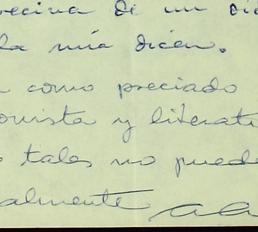 vecina de un di
la mía dicen.
como preciado
onista y literat
tales no puede
almente